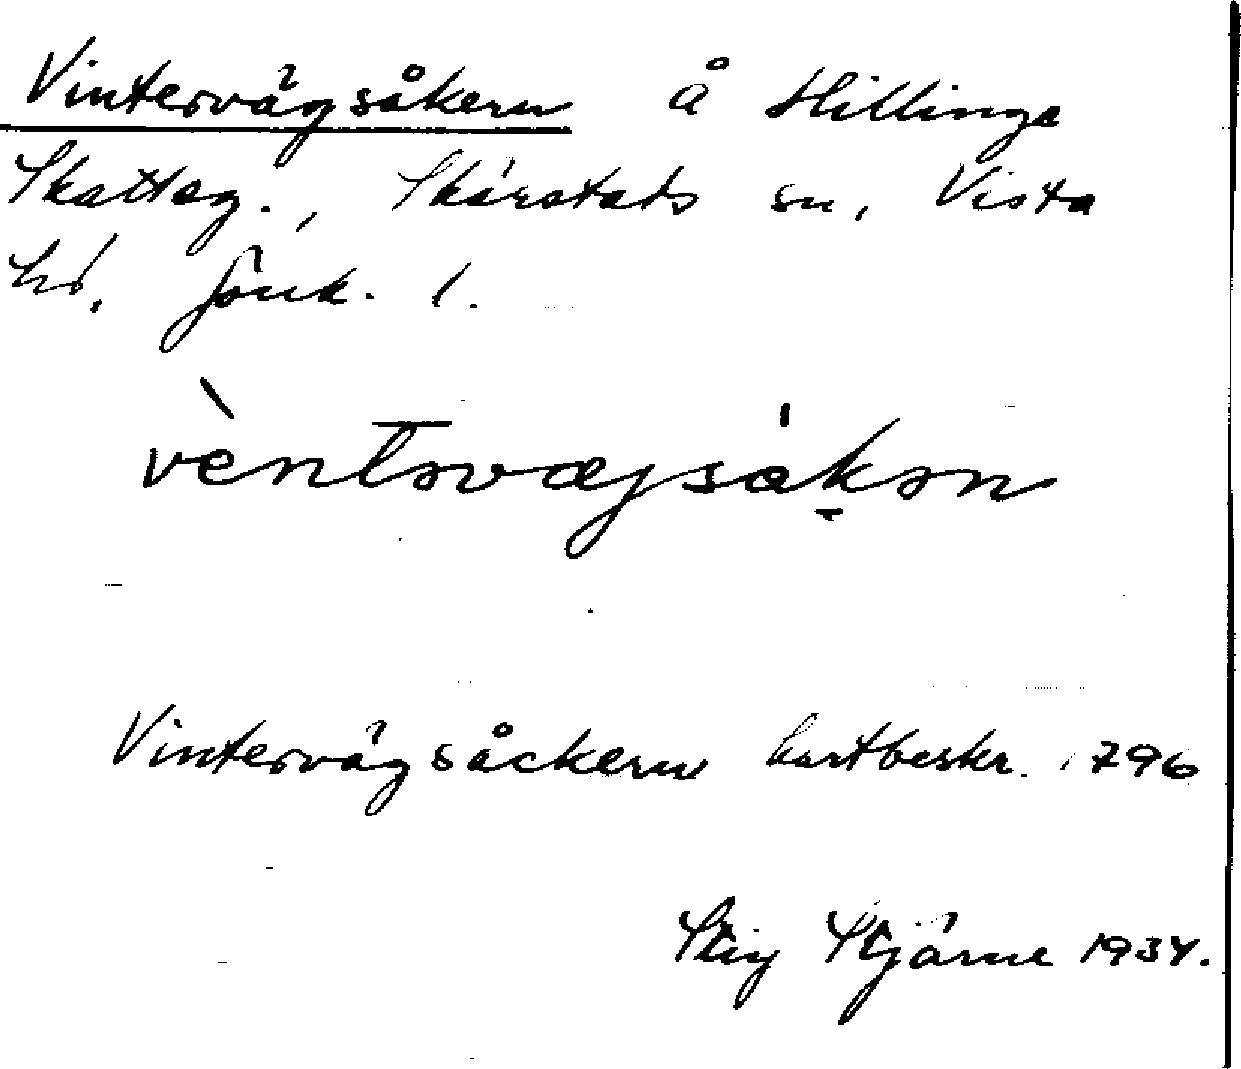 Vintervägsåkern å Hillinge
Skatteg., Skärstads sn, Vista
hd. Jönk. l.
vèntərvæjsåkən
Vintervägsåckern kartbeskr. 1796
Stig Stjärne 1934.